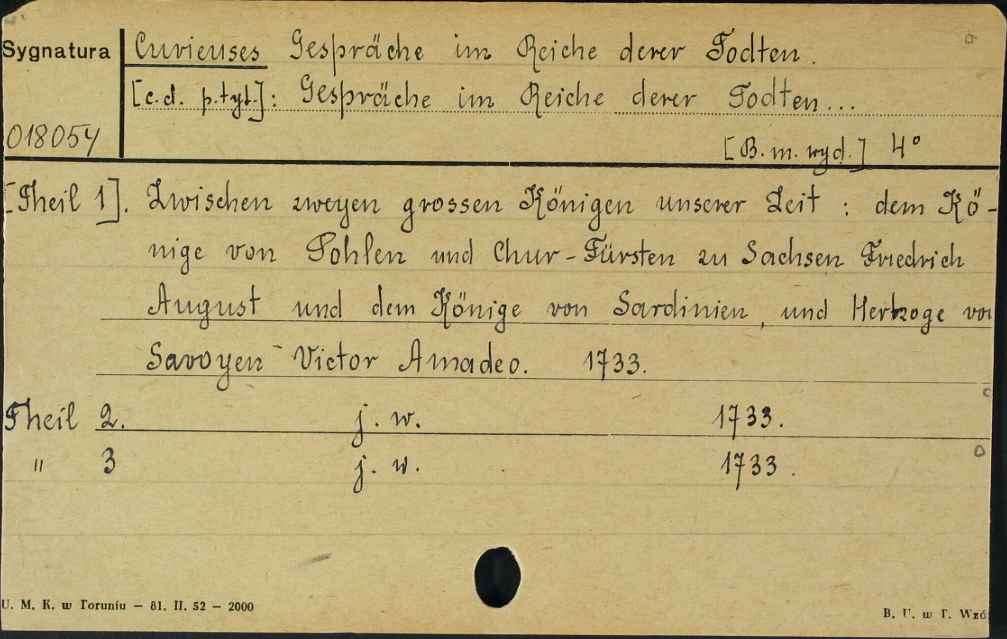 Sygnatura Curieuses Gespräche im Reiche derer Todten.
[c.d. p.tyt.]: Gespräche im Reiche derer Todten...
018054 [B.m.wyd.] 4°
[Theil 1]. Zwischen zweyen grossen Königen unserer Zeit : dem Kö-
nige von Pohlen und Chur-Fürsten zu Sachsen Friedrich
August und dem Könige von Sardinien, und Hertzoge von
Savoyen Victor Amadeo. 1733.
Theil 2. j. w. 1733.
" 3 j. w. 1733.
U. M. K. w Toruniu — 81. II. 52 — 2000
B. U. w T. Wzó